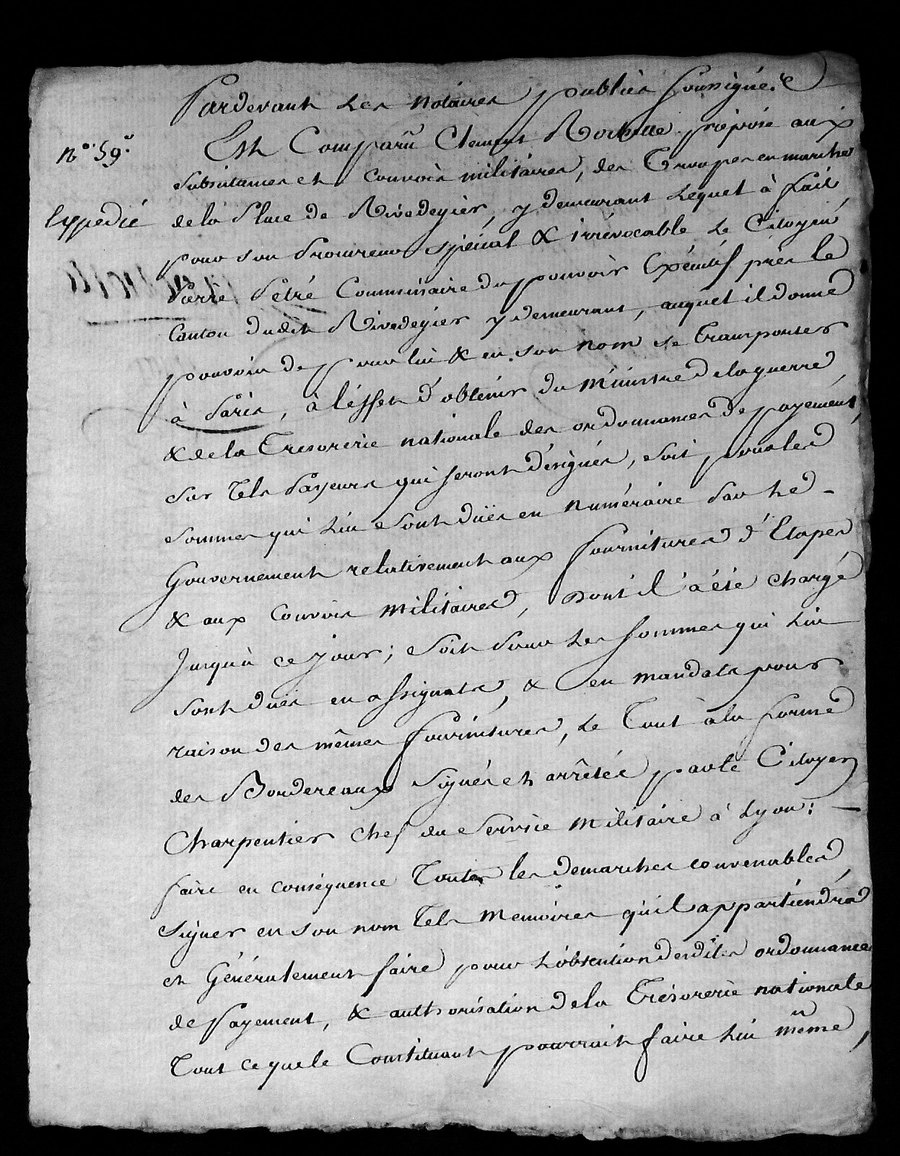 Pardevant Les notaires publics soussignés
n.º 59.
Est Comparu Clement Rorbelle préposé aux
Subsistances et convois militaires, des Troupes en marche
Expedié
de la Place de Rivedegier, y demeurant Lequel à fait
pour son Procureur spécial & irrévocable Le Citoyen
Pierre Pétré Commissaire du pouvoir Exécutif près le
Canton dudit Rivedegier y demeurant, auquel il donne
pouvoir de pour lui & en son nom se transporter
à Paris, à l'effet d'obtenir du Ministre de la guerre
& de la Trésorerie nationale des ordonnances de payement,
sur Tels Payeurs qui seront désignés, soit pour les
sommes qui Lui sont dües en numéraire par Le
Gouvernement relativement aux fournitures d'Etapes
& aux Convois Militaires, dont il a été chargé
jusqu'à ce jour; soit pour Les sommes qui Lui
sont dües en assignats, & en mandats pour
raison des mêmes fournitures, Le Tout à la forme
des Bordereaux signés et arrêtés par le Citoyen
Charpentier chef du service Militaire à Lyon:
faire en conséquence Toutes les demarches convenables
signer en son nom Tels Memoires qu'il appartiendra
et Généralement faire pour L'obtention desdites ordonnances
de Payement, & authorisation de la Trésorerie nationale
Tout ce que le Constituant pourrait faire Lui même,